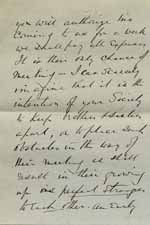 you will authorize his
coming to us for a week
we shall pay all expenses
It is their only chance of
meeting – I can scarcely
imagine that it is the
intention of your Society
to keep brother & sister
apart, or to place such
obstacles in the way of
their meeting as shall
result in their growing
up perfect strangers
to each other. An early